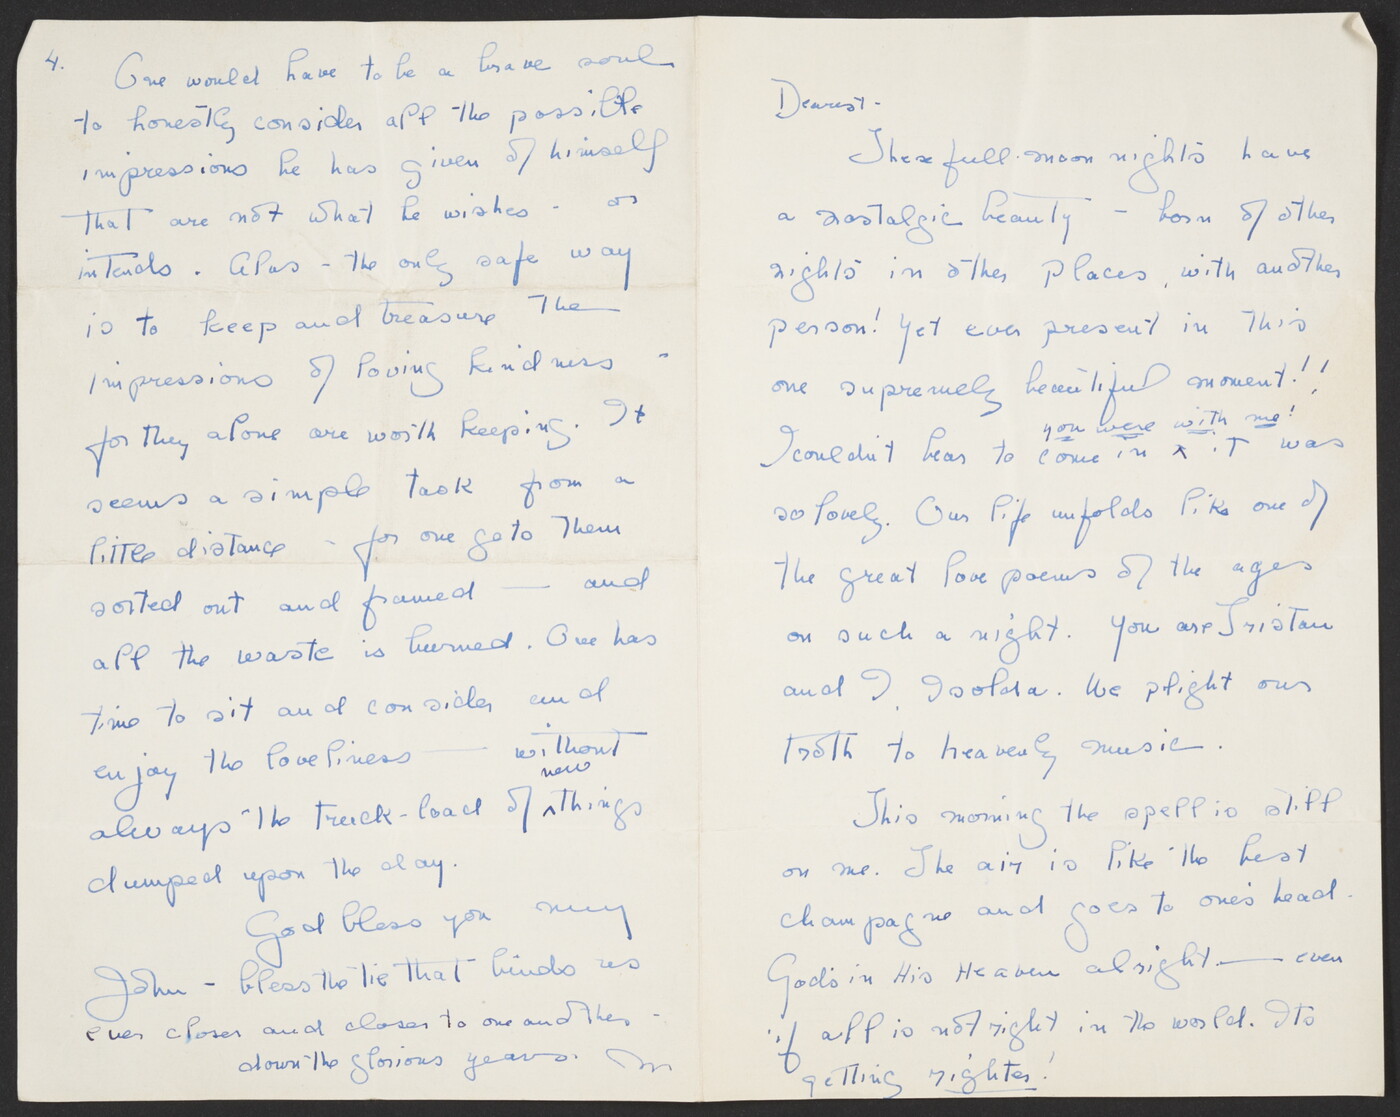 4.
One would have to be a brave soul
to honestly consider all the possible
impressions he has given of himself
that are not what he wishes - or
intends. Alas - the only safe way
is to keep and treasure the
impressions of loving kindness -
for they alone are worth keeping. It
seems a simple task from a
little distance - for one gets them
sorted out and framed — and
all the waste is burned. One has
time to sit and consider and
enjoy the loveliness — without
new
always the truck-load of ^ things
dumped upon the day.
God bless you my
John - bless the tie that binds us
ever closer and closer to one another -
down the glorious years. M
Dearest -
These full-moon nights have
a nostalgic beauty - born of other
nights in other places, with another
person! Yet ever present in this
one supremely beautiful moment!!
you were with me!
I couldn't bear to come in ^ it was
so lovely. Our life unfolds like one of
the great love poems of the ages
on such a night. You are Tristan
and I, Isolda. We plight our
troth to heavenly music.
This morning the spell is still
on me. The air is like the best
champagne and goes to one's head.
God's in His Heaven alright — even
if all is not right in the world. Its
getting righter!